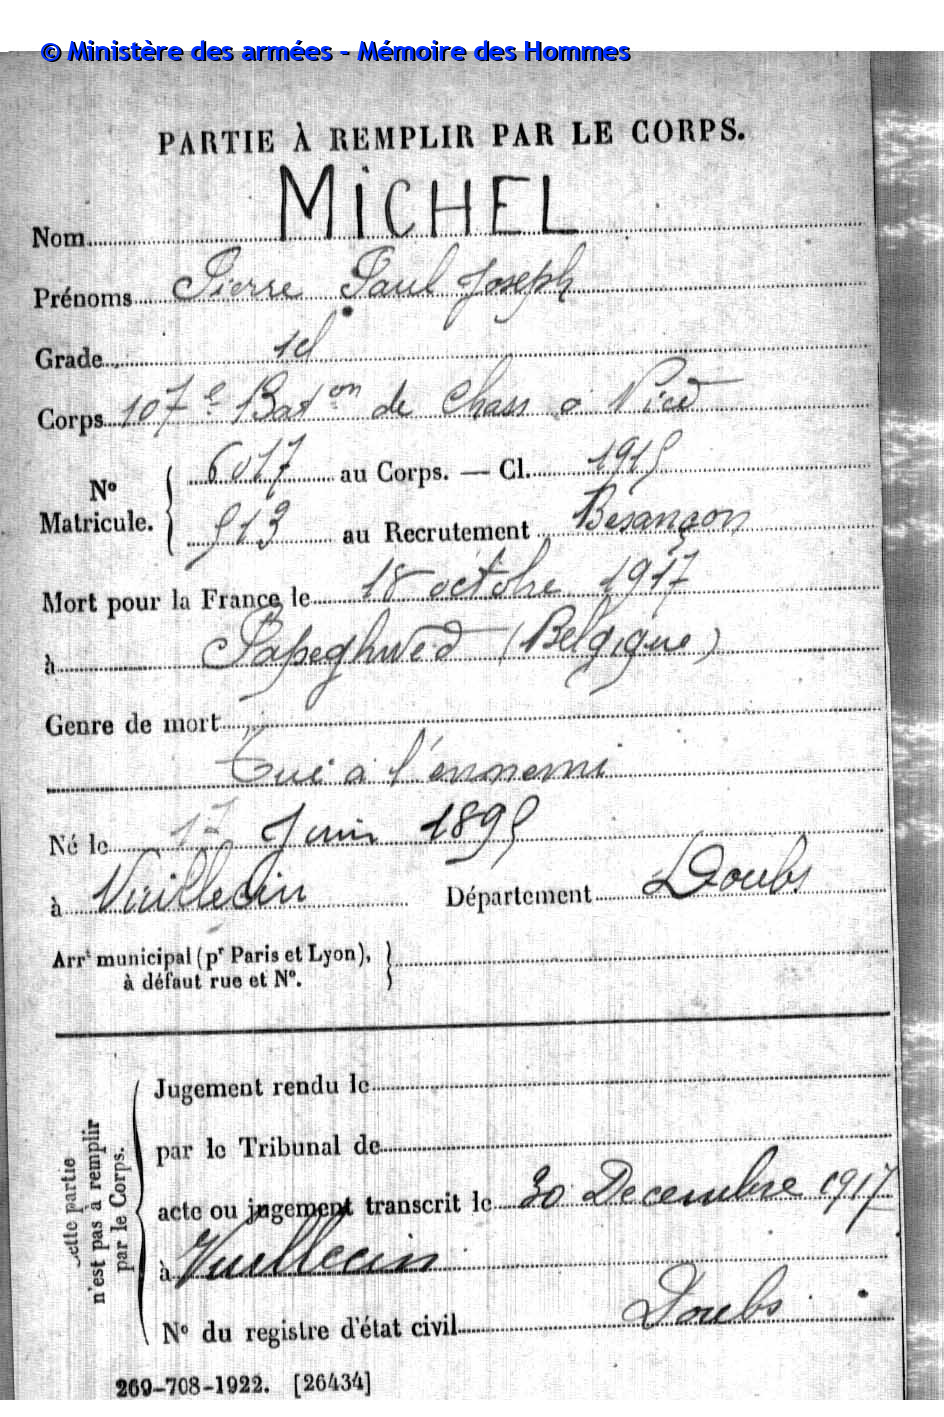 © Ministère des armées - Mémoire des Hommes
PARTIE À REMPLIR PAR LE CORPS.
Nom MICHEL
Prénoms Pierre Paul Joseph
Grade 1cl
Corps 107e Baton de Chass à Pied
No Matricule. 6017 au Corps. — Cl. 1915
913 au Recrutement Besançon
Mort pour la France le 18 octobre 1917
à Papeghwed (Belgique)
Genre de mort
Tué à l'ennemi
Né le 17 Juin 1895
à Vuillecin Département Doubs
Arrt municipal (pr Paris et Lyon),
à défaut rue et No.
Jugement rendu le
par le Tribunal de
acte ou jugement transcrit le 30 Decembre 1917
à Vuillecin
No du registre d'état civil Doubs
Cette partie
n'est pas à remplir
par le Corps.
269-708-1922. [26434]